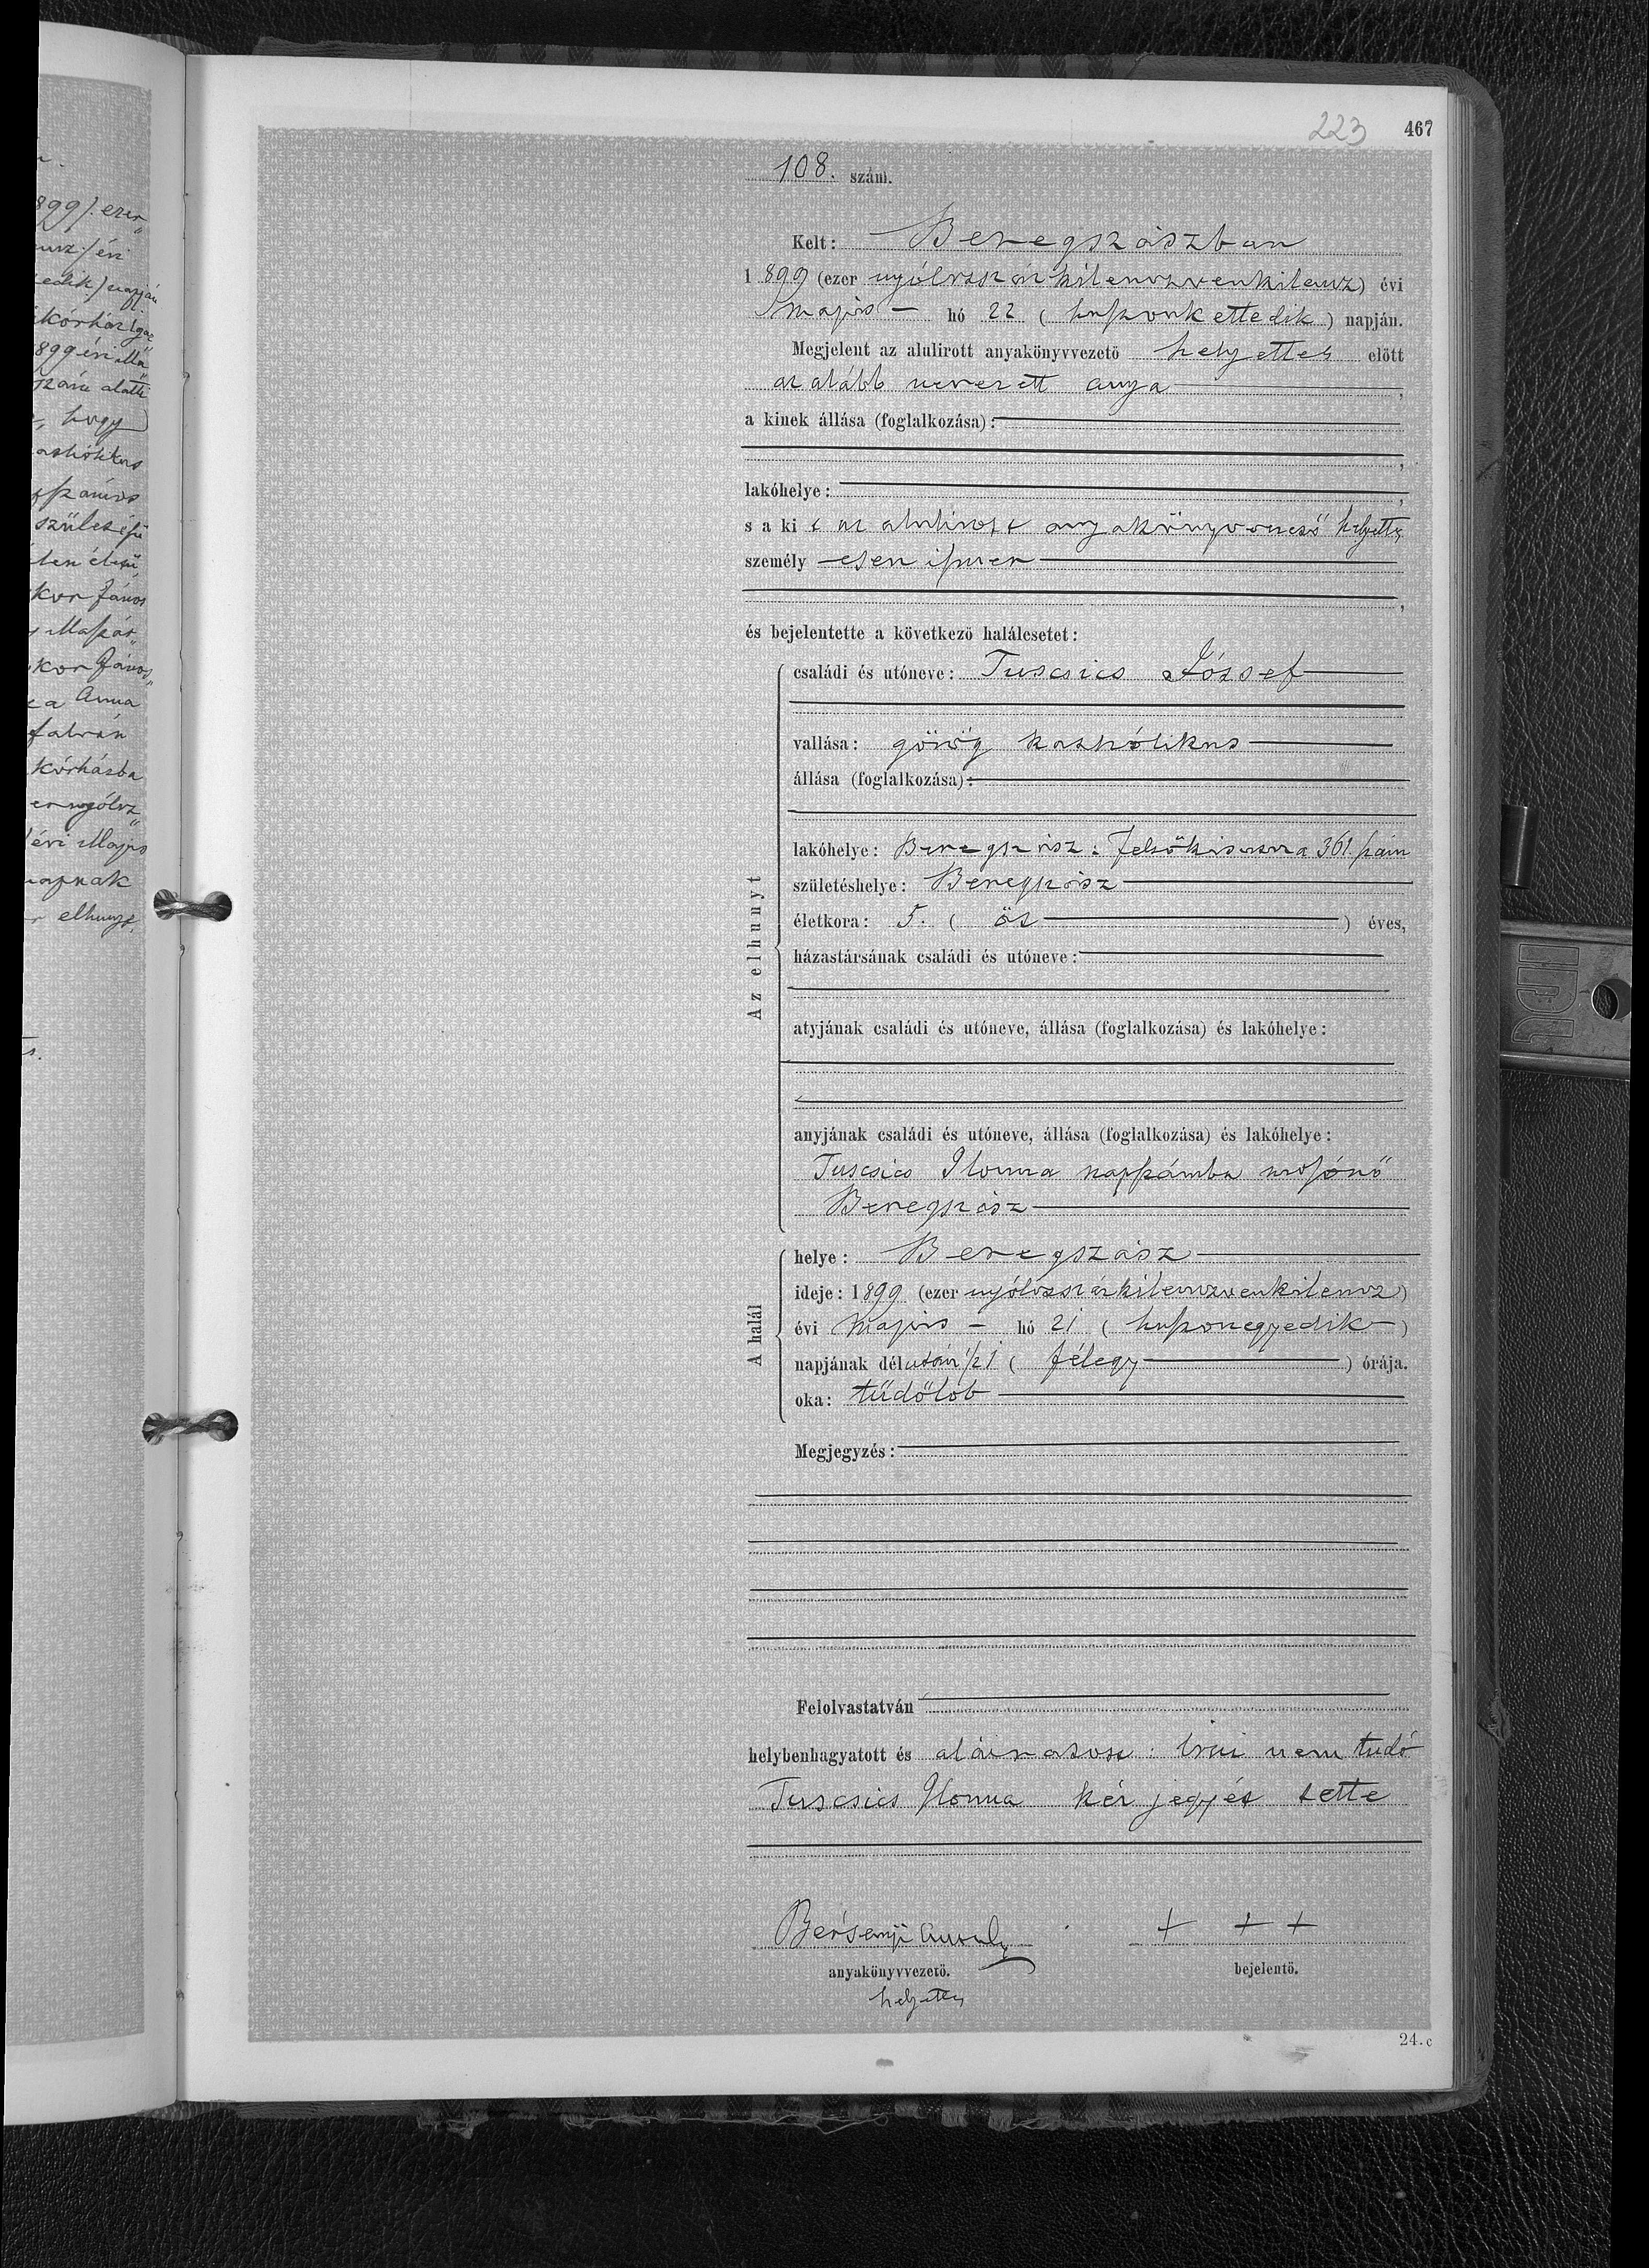 223 467
108. szám.
Kelt: Beregszászban
1899 (ezer nyólczszázkilenczvenkilencz) évi
Május hó 22 (huszonkettedik) napján.
Megjelent az alulirott anyakönyvvezető helyettes előtt
az alább nevezett anya,
a kinek állása (foglalkozása):
lakóhelye:
s a kit az alulirott anyakönyvvezető helyettes
személyesen ismer
és bejelentette a következő halálesetet:
Az elhunyt
családi és utóneve: Tuscsics József
vallása: görög katholikus
állása (foglalkozása):
lakóhelye: Beregszász: 361. szám
születéshelye: Beregszász
életkora: 5. (öt) éves,
házastársának családi és utóneve:
atyjának családi és utóneve, állása (foglalkozása) és lakóhelye:
anyjának családi és utóneve, állása (foglalkozása) és lakóhelye:
Tuscsics Ilonna napszámba mosónő
Beregszász
A halál
helye: Beregszász
ideje: 1899 (ezer nyólczszázkilenczvenkilencz)
évi Május hó 21 (huszonegyedik)
napjának délután 1/2 1 (félegy) órája.
oka: tüdőlob
Megjegyzés:
Felolvastatván
helybenhagyatott és aláiratott: Irni nem tudó
Tuscsics Ilonna kézjegyét tette
Bersenyi + + +
anyakönyvvezető. bejelentő.
helyettes
24. c
899). ezer
évi
napján
kórház
899 évi
szám alatti
hogy
születésű
János
János
Anna
kórházba
évi Május
napnak
elhunyt.